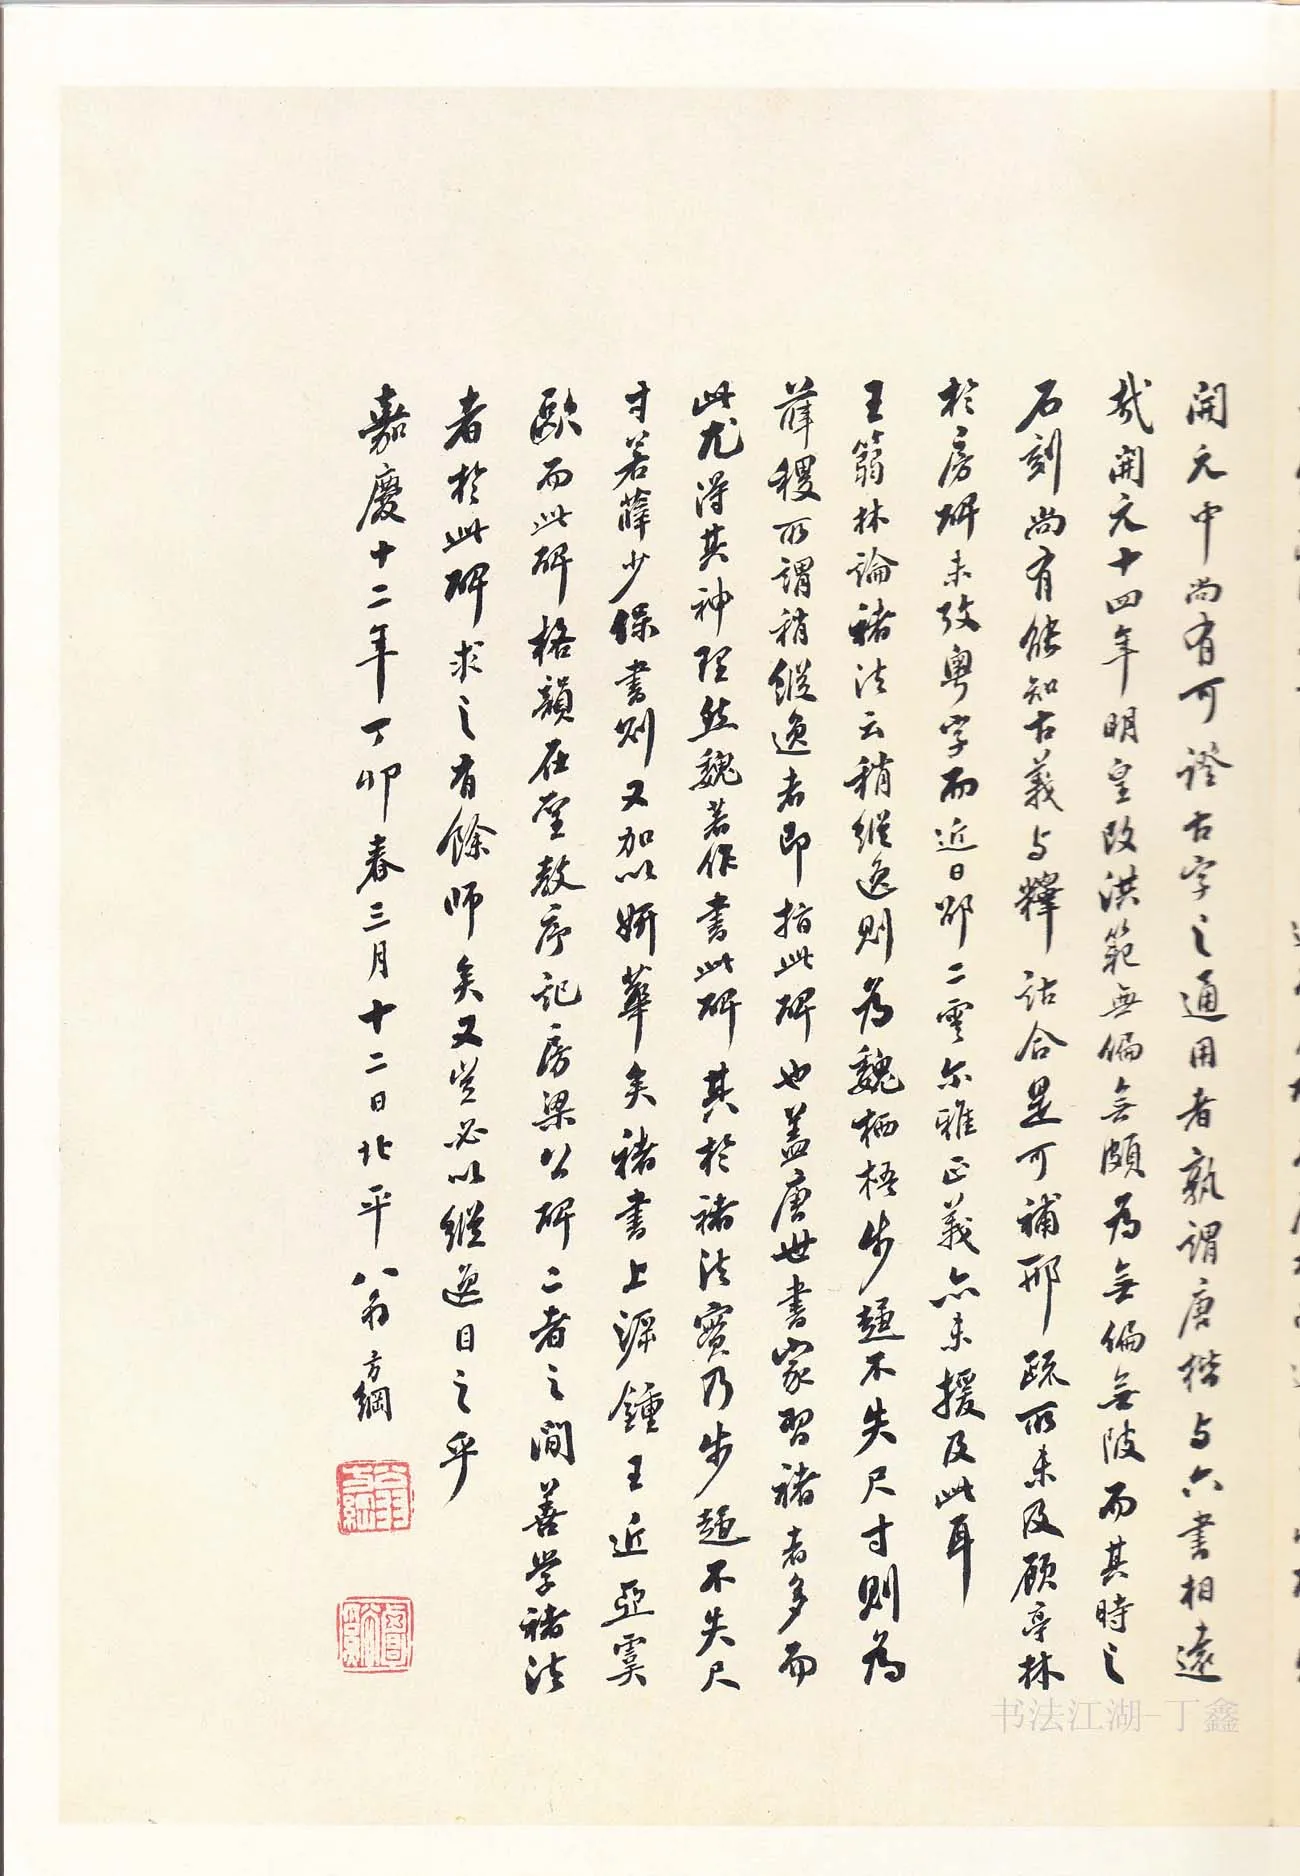 開元中尚有可證古字之通用者孰謂唐楷与六書相遠
哉開元十四年明皇改洪範無偏無頗為無偏無陂而其時之
石刻尚有能知古義与釋詁合是可補邢疏所未及顧亭林
於房碑未攷粤字而近日邵二雲尔雅正義亦未援及此耳
王箬林論褚法云稍縱逸則為魏栖梧步趨不失尺寸則為
薛稷所謂稍縱逸者即指此碑也蓋唐世書家習褚者多而
此尤得其神理然魏著作書此碑其於褚法實乃步趨不失尺
寸若薛少保書則又加以妍華矣褚書上源鍾王近亞虞
歐而此碑格韻在聖教序記房梁公碑二者之間善学褚法
者於此碑求之有餘師矣又豈必以縱逸目之乎
嘉慶十二年丁卯春三月十二日北平翁方綱
翁方綱
覃谿
书法江湖-丁鑫